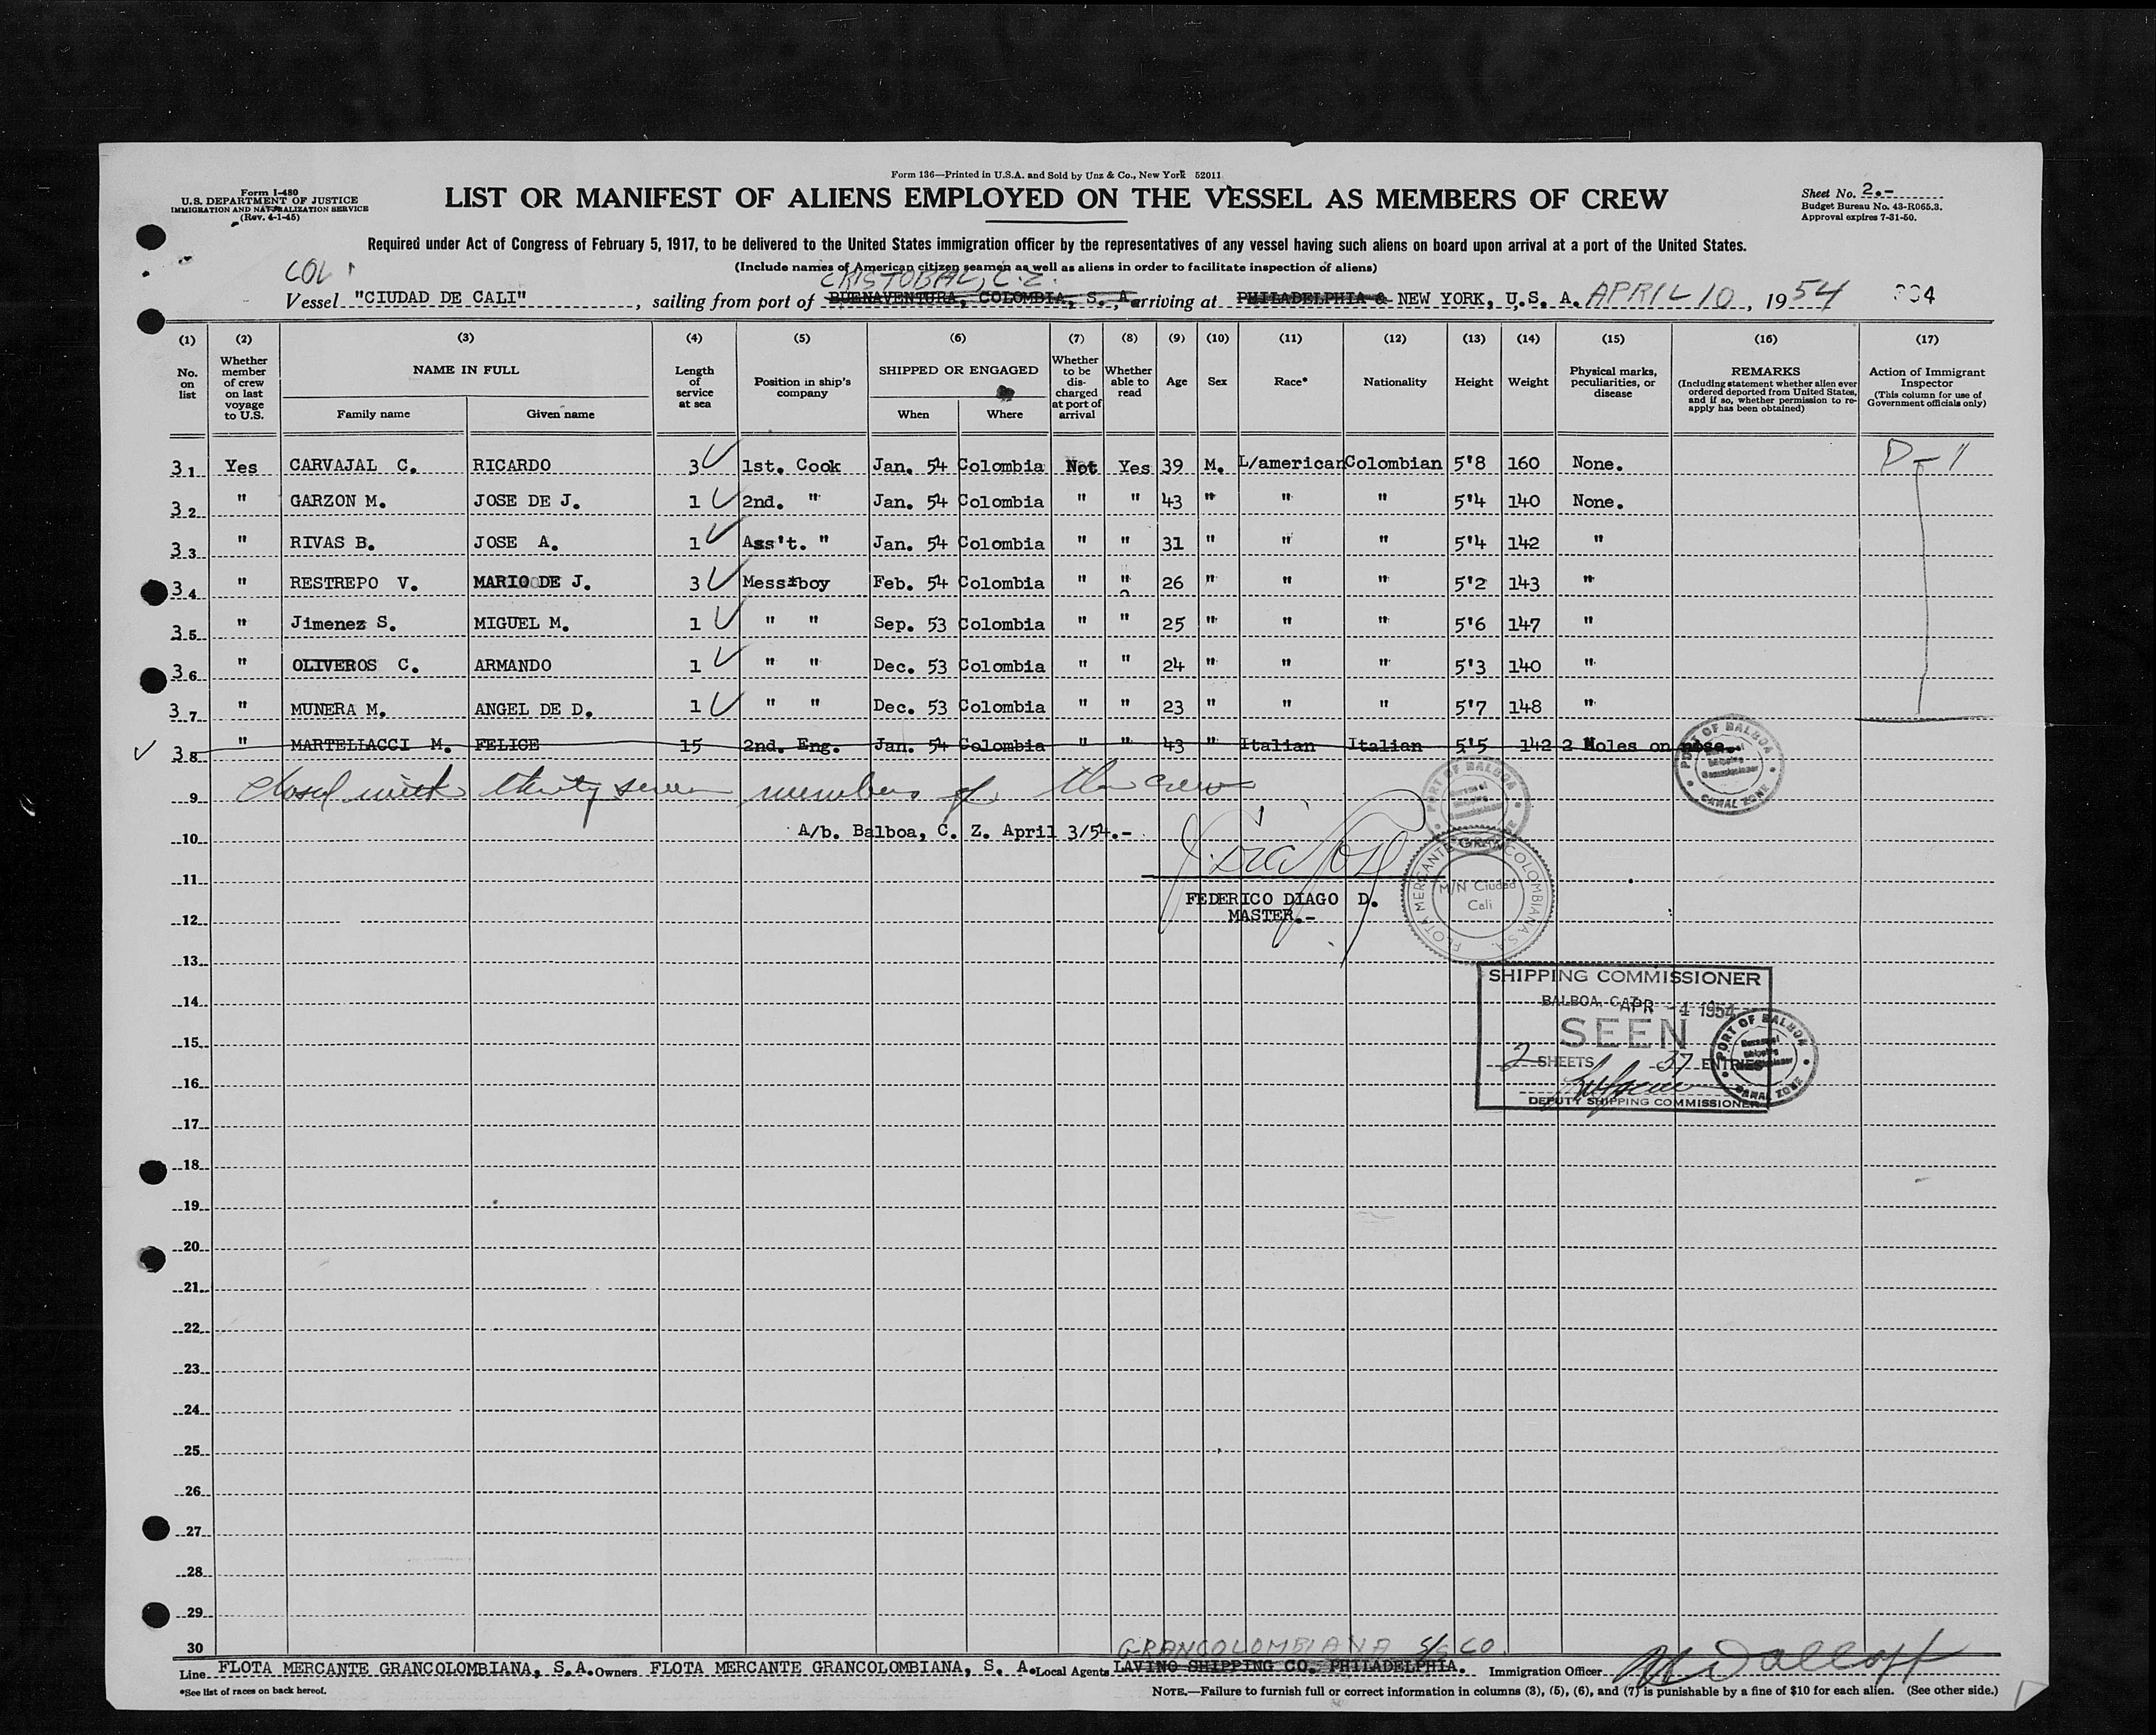 Form 136—Printed in U.S.A. and Sold by Unz & Co., New York 52011
Form I-480
U.S. DEPARTMENT OF JUSTICE
IMMIGRATION AND NATURALIZATION SERVICE
(Rev. 4-1-45)
LIST OR MANIFEST OF ALIENS EMPLOYED ON THE VESSEL AS MEMBERS OF CREW
Sheet No. 2.-
Budget Bureau No. 43-R065.3.
Approval expires 7-31-50.
Required under Act of Congress of February 5, 1917, to be delivered to the United States immigration officer by the representatives of any vessel having such aliens on board upon arrival at a port of the United States.
(Include names of American citizen seamen as well as aliens in order to facilitate inspection of aliens)
COL
CRISTOBAL, C.Z.
Vessel "CIUDAD DE CALI", sailing from port of BUENAVENTURA, COLOMBIA, S. A. arriving at PHILADELPHIA & NEW YORK, U.S. A. APRIL 10, 1954
(1) (2) (3) (4) (5) (6) (7) (8) (9) (10) (11) (12) (13) (14) (15) (16) (17)
No. on list
Whether member of crew on last voyage to U.S.
NAME IN FULL
Family name
Given name
Length of service at sea
Position in ship's company
SHIPPED OR ENGAGED
When
Where
Whether to be discharged at port of arrival
Whether able to read
Age
Sex
Race*
Nationality
Height
Weight
Physical marks, peculiarities, or disease
REMARKS
(Including statement whether alien ever ordered deported from United States, and if so, whether permission to re-apply has been obtained)
Action of Immigrant Inspector
(This column for use of Government officials only)
31 Yes CARVAJAL C. RICARDO 3 1st. Cook Jan. 54 Colombia Not Yes 39 M. L/american Colombian 5'8 160 None. D-1
32 " GARZON M. JOSE DE J. 1 2nd. " Jan. 54 Colombia " " 43 " " " 5'4 140 None.
33 " RIVAS B. JOSE A. 1 Ass't. " Jan. 54 Colombia " " 31 " " " 5'4 142 "
34 " RESTREPO V. MARIO DE J. 3 Mess*boy Feb. 54 Colombia " " 26 " " " 5'2 143 "
35 " Jimenez S. MIGUEL M. 1 " " Sep. 53 Colombia " " 25 " " " 5'6 147 "
36 " OLIVEROS C. ARMANDO 1 " " Dec. 53 Colombia " " 24 " " " 5'3 140 "
37 " MUNERA M. ANGEL DE D. 1 " " Dec. 53 Colombia " " 23 " " " 5'7 148 "
38 " MARTELLACCI M. FELICE 15 2nd. Eng. Jan. 54 Colombia " " 43 " Italian Italian 5'5 142 2 Holes on nose.
PORT OF BALBOA
Shipping Commissioner
CANAL ZONE
9 closed with thirty seven members of the crew
PORT OF BALBOA
Shipping Commissioner
10 A/b. Balboa, C. Z. April 3/54.-
11
FEDERICO DIAGO D.
12 MASTER.-
FLOTA MERCANTE GRANCOLOMBIANA S.A.
M/N Ciudad Cali
13
SHIPPING COMMISSIONER
14
BALBOA, C.Z. APR -4 1954
SEEN
15
2 SHEETS 37 ENTRIES
16
DEPUTY SHIPPING COMMISSIONER
PORT OF BALBOA
Shipping Commissioner
CANAL ZONE
17
18
19
20
21
22
23
24
25
26
27
28
29
30
GRANCOLOMBIANA S/S CO.
Line FLOTA MERCANTE GRANCOLOMBIANA, S.A. Owners FLOTA MERCANTE GRANCOLOMBIANA, S. A. Local Agents LAVINO SHIPPING CO. PHILADELPHIA. Immigration Officer
*See list of races on back hereof.
NOTE.—Failure to furnish full or correct information in columns (3), (5), (6), and (7) is punishable by a fine of $10 for each alien. (See other side.)